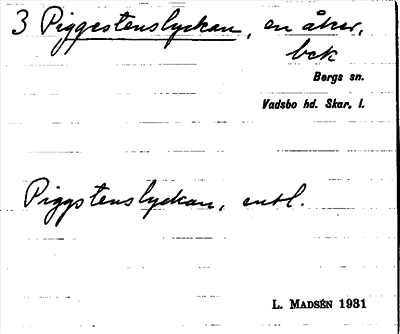 3 Piggestenslyckan, en åker,
bek
Bergs sn.
Vadsbo hd. Skar. l.
Piggstenslyckan, entl.
L. MADSÉN 1931